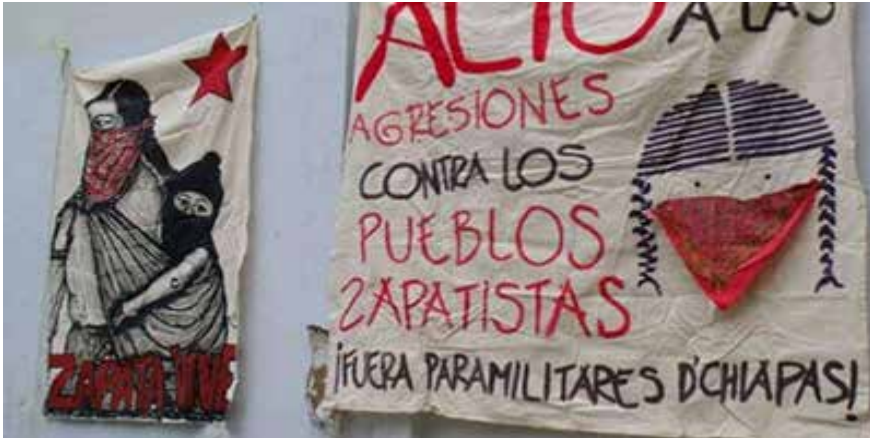 ZAPATA VIVE
ALTO A LAS
AGRESIONES
CONTRA LOS
PUEBLOS
ZAPATISTAS
¡FUERA PARAMILITARES D'CHIAPAS!